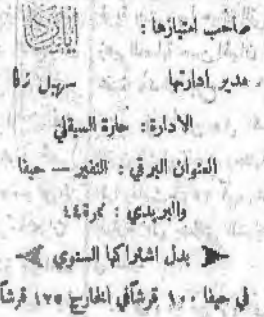 صاحب امتيازها :
مدير ادارتها سهيل زكا
الادارة : حارة
العنوان البرقي : النفير — حيفا
والبريدي : نمرة ٤٤
بدل اشتراكها السنوي
في حيفا ١٠٠ قرش في الخارج ١٢٥ قرشا